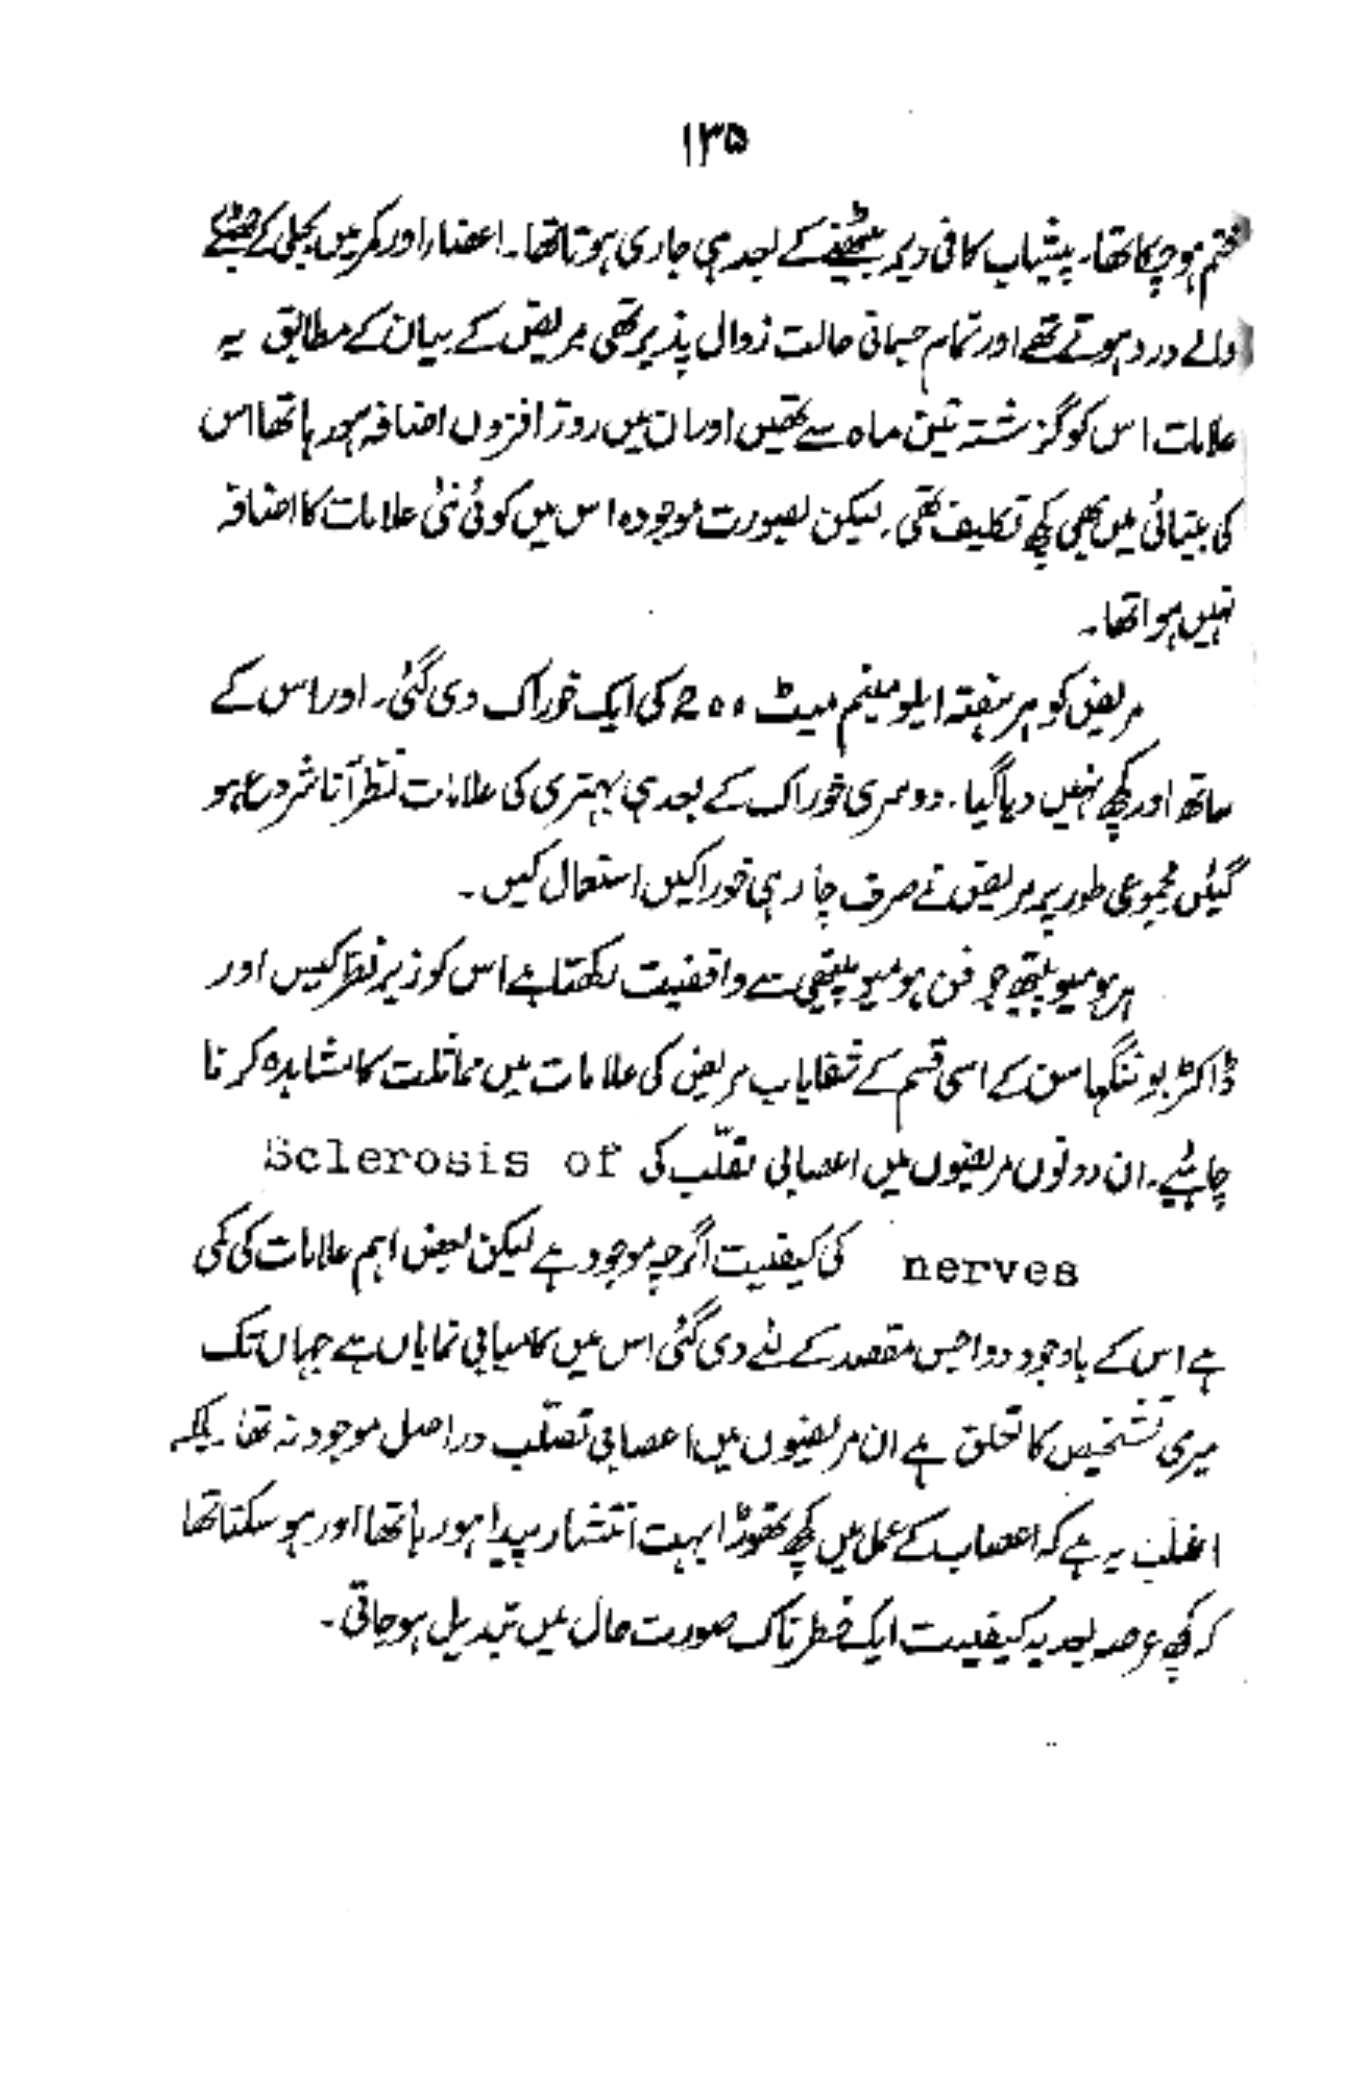 ۱۳۵
ختم ہوچکا تھا۔ پیشاب کافی دیر بیٹھنے کے بعد ہی جاری ہوتا تھا۔ اعضاء اور کمر میں بجلی کے جھٹکے
والے درد ہوتے تھے اور تمام جسمانی حالت زوال پذیر تھی مریض کے بیان کے مطابق یہ
علامات اس کو گزشتہ تین ماہ سے تھیں اور ان میں روز افزوں اضافہ ہو رہا تھا اس
کی بینائی میں بھی کچھ تکلیف تھی۔ لیکن بصورت موجودہ اس میں کوئی نئی علامات کا اضافہ
نہیں ہوا تھا۔
مریض کو ہر ہفتہ ایلومینیم میٹ 200 کی ایک خوراک دی گئی۔ اور اس کے
ساتھ اور کچھ نہیں دیا گیا۔ دوسری خوراک کے بعد ہی بہتری کی علامات نظر آنا شروع ہو
گیئں مجموعی طور پر مریض نے صرف چار ہی خوراکیں استعمال کیں۔
ہر ہومیوپیتھ جو فن ہومیوپیتھی سے واقفیت رکھتا ہے اس کو زیر نظر کیس اور
ڈاکٹر بوننگہاسن کے اسی قسم کے شفایاب مریض کی علامات میں مماثلت کا مشاہدہ کرنا
چاہئیے۔ ان دونوں مریضوں میں اعصابی تقلّب کی Sclerosis of
nerves کی کیفیت اگرچہ موجود ہے لیکن بعض اہم علامات کی کمی
ہے اس کے باوجود دوا جس مقصد کے لئے دی گئی اس میں کامیابی نمایاں ہے جہاں تک
میری تشخیص کا تعلق ہے ان مریضوں میں اعصابی تصلّب دراصل موجود نہ تھا۔ بلکہ
اغلب یہ ہے کہ اعصاب کے عمل میں کچھ تھوڑا بہت انتشار پیدا ہو رہا تھا اور ہو سکتا تھا
کہ کچھ عرصہ بعد یہ کیفیت ایک خطرناک صورت حال میں تبدیل ہو جاتی۔